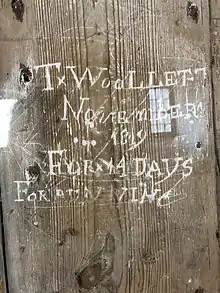 Tx WOOLLETT
NOVEMBER
1819
FOR 14 DAYS
FOR